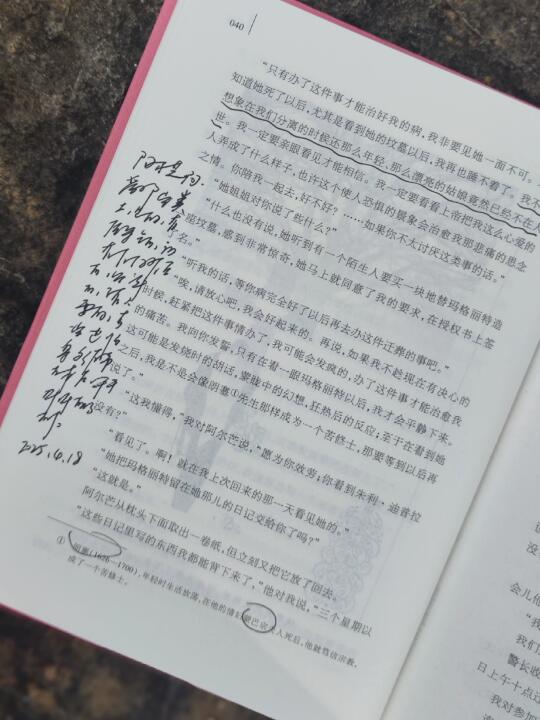 040
“只有办了这件事才能治好我的病，我非要见她一面不可。
知道她死了以后，尤其是看到她的坟墓以后，我再也睡不着了。我不
想象在我们分离的时候还那么年轻、那么漂亮的姑娘竟然已经不在人
世。我一定要亲眼看见才能相信。我一定要看看上帝把我这么心爱的
人弄成了什么样子，也许这个使人恐惧的景象会治愈我那悲痛的思念
之情。你陪我一起去，好不好？……如果你不太讨厌这类事的话。”
“她姐姐对你说了些什么？”
“什么也没有说，她听到有一个陌生人要买一块地替玛格丽特造
座坟墓，感到非常惊奇，她马上就同意了我的要求，在授权书上签
了名。”
“听我的话，等你病完全好了以后再去办这件迁葬的事吧。”
“唉，请放心吧，我会好起来的。再说，如果我不趁现在有决心的
时候，赶紧把这件事情办了，我可能会发疯的，办了这件事才能治愈我
的痛苦。我向你发誓，只有在看一眼玛格丽特以后，我才会平静下来。
这可能是发烧时的胡话，朦胧中的幻想，狂热后的反应；至于在看到她
之后，我是不是会像朗塞①先生那样成为一个苦修士，那要等到以后再
说了。”
“这我懂得，”我对阿尔芒说，“愿为你效劳；你看到朱利·迪普拉
没有？”
“看见了。啊！就在我上次回来的那一天看见她的。”
“她把玛格丽特留在她那儿的日记交给你了吗？”
“这就是。”
阿尔芒从枕头下面取出一卷纸，但立刻又把它放了回去。
“这些日记里写的东西我都能背下来了，”他对我说，“三个星期以
① 朗塞（1626—1700），年轻时生活放荡，在他的情妇蒙巴宗夫人死后，他就笃信宗教，
成了一个苦修士。
2025.4.18
没
会儿他
“我
我们
警长收
日上午十点
我对参加